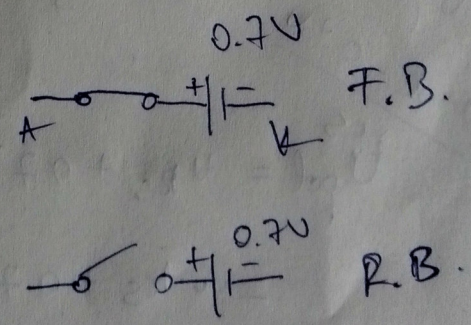 0.7V
+ -
A K
F.B.
0.7V
+ -
R.B.